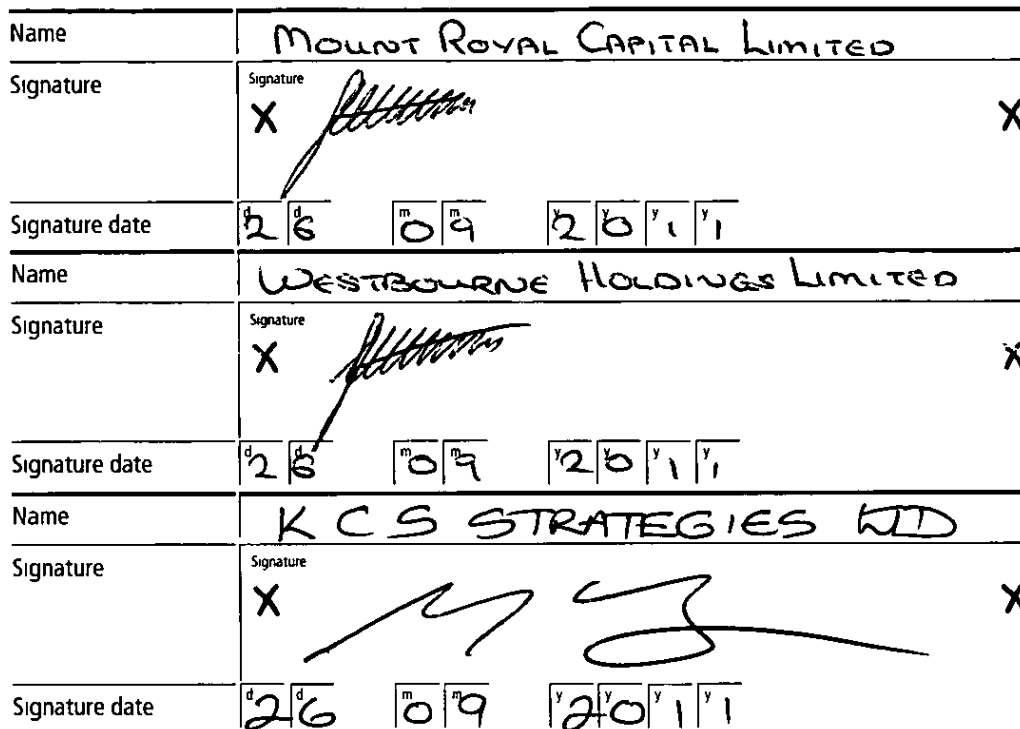 Name MOUNT ROYAL CAPITAL LIMITED
Signature Signature
X X
Signature date d2 d6 m0 m9 y2 y0 y1 y1
Name WESTBOURNE HOLDINGS LIMITED
Signature Signature
X X
Signature date d2 d6 m0 m9 y2 y0 y1 y1
Name K C S STRATEGIES LTD
Signature Signature
X X
Signature date d2 d6 m0 m9 y2 y0 y1 y1